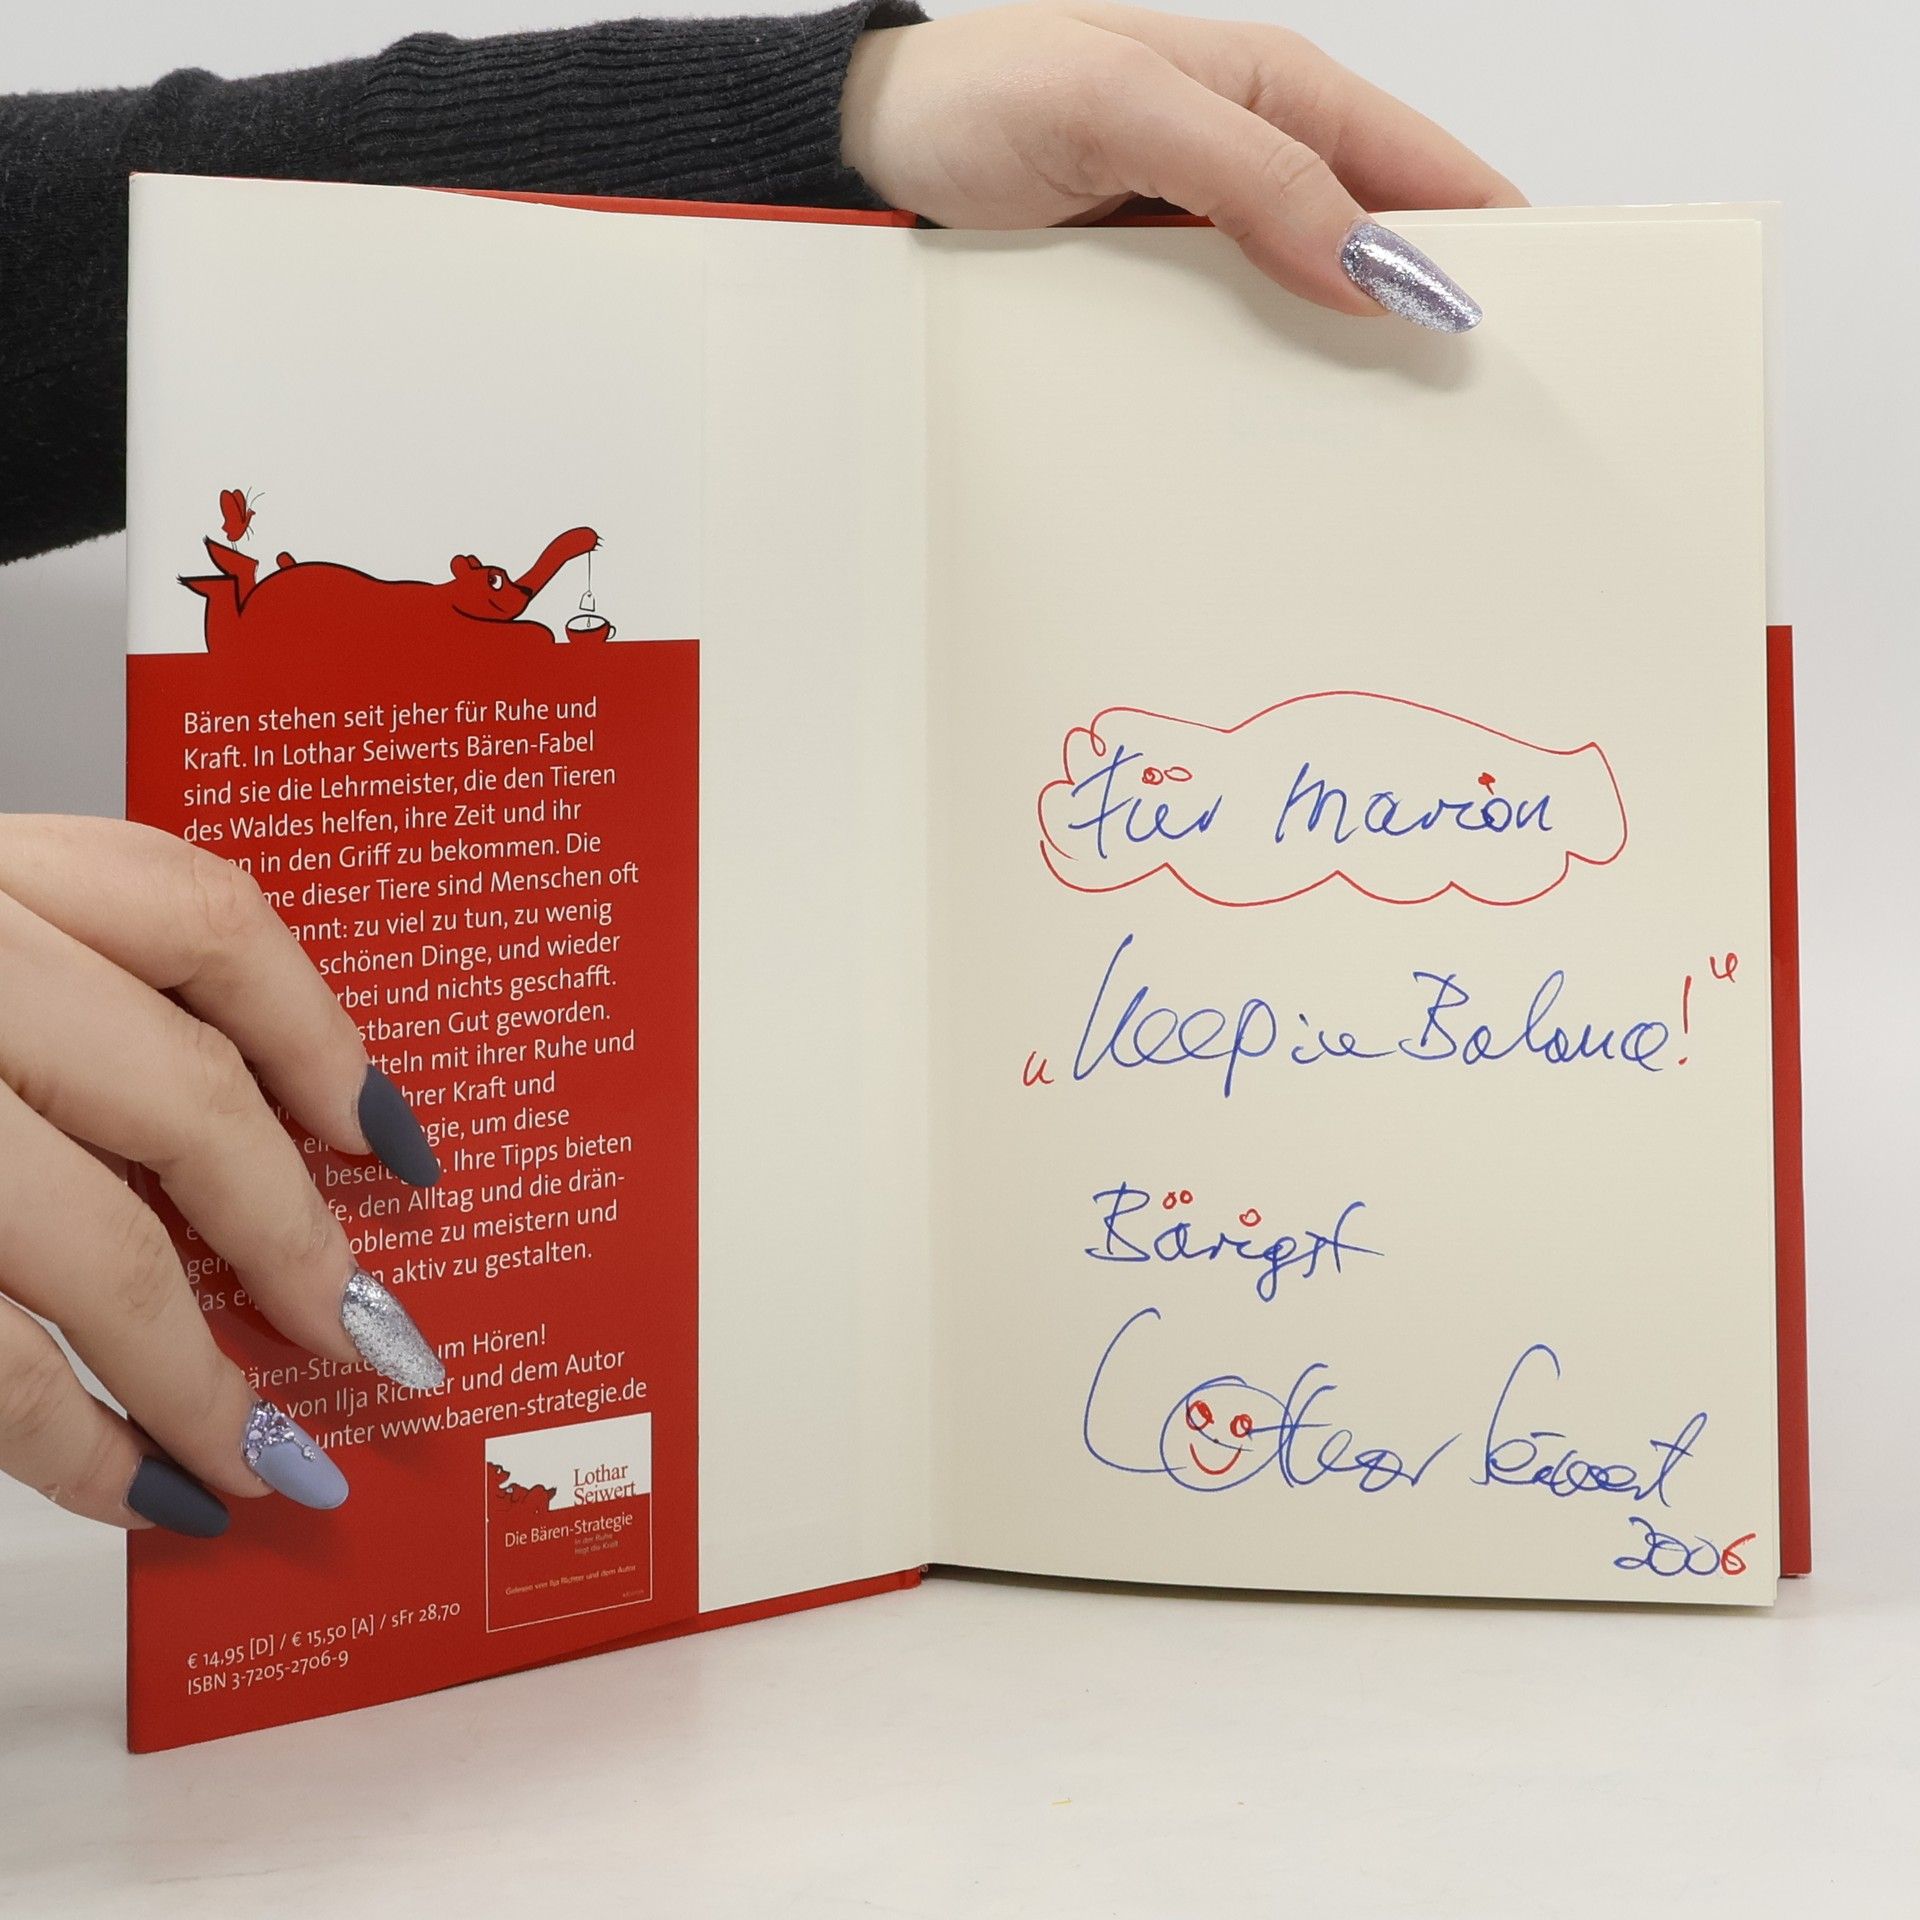 Bären stehen seit jeher für Ruhe und
Kraft. In Lothar Seiwerts Bären-Fabel
sind sie die Lehrmeister, die den Tieren
des Waldes helfen, ihre Zeit und ihr
in den Griff zu bekommen. Die
dieser Tiere sind Menschen oft
zu viel zu tun, zu wenig
schönen Dinge, und wieder
und nichts geschafft.
Gut geworden.
mit ihrer Ruhe und
Kraft und
um diese
Ihre Tipps bieten
den Alltag und die drän-
zu meistern und
aktiv zu gestalten.
Hören!
von Ilja Richter und dem Autor
unter www.baeren-strategie.de
Lothar
Seiwert
Die Bären-Strategie
In der Ruhe
liegt die Kraft
Gelesen von Ilja Richter und dem Autor
€ 14,95 [D] / € 15,50 [A] / sFr 28,70
ISBN 3-7205-2706-9
Für Marion
„Keep in Balance!“
Bärigst
Lothar Seiwert
2006